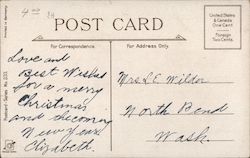 4-00
POST CARD
United States
& Canada
One Cent
Foreign
Two Cents.
For Correspondence.
For Address Only.
Printed in Germany.
Postcard Series No. 233.
Love and
Best Wishes
for a merry
Christmas
and the coming
New Year.
Elizabeth.
Mrs L E Wilder
North Bend
Wash.